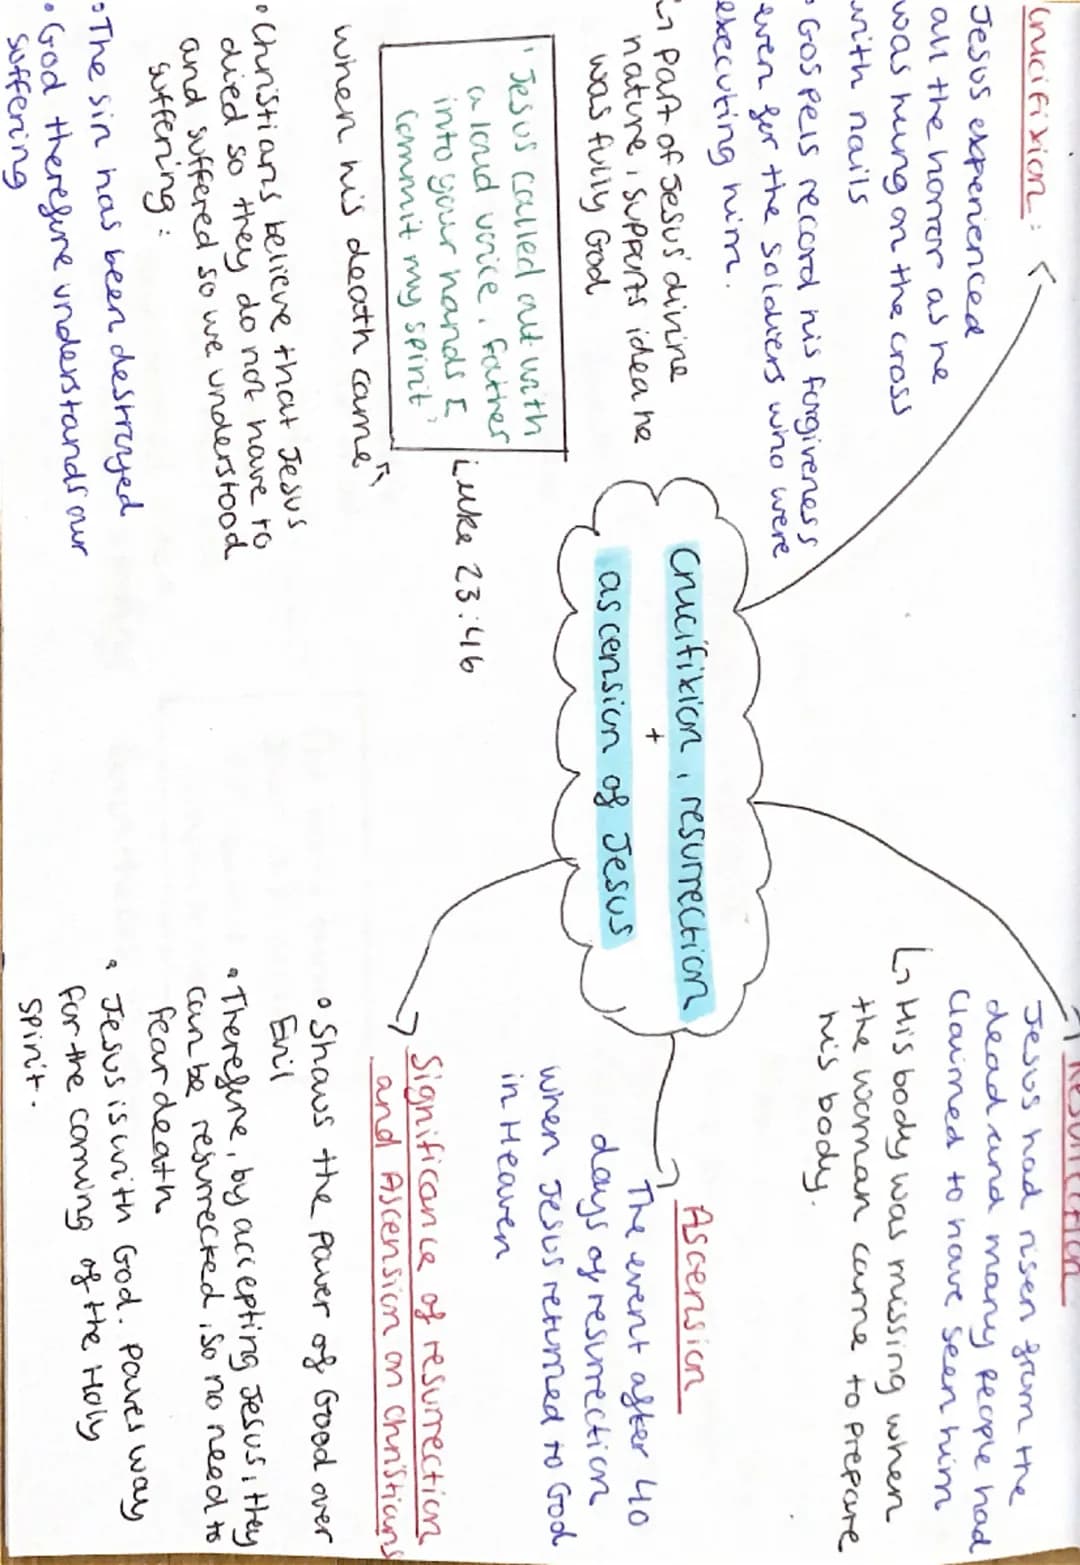 Crucifixion:
Jesus experienced
all the horror as he
was hung on the cross
with nails
• Gospels record his forgiveness
even for the soldiers who were
executing him.
↳ part of Jesus' divine
nature, supports idea he
was fully God
'Jesus called out with
a loud voice, father
into your hands I
commit my spirit'
Luke 23:46
when his death came
• Christians believe that Jesus
died so they do not have to
and suffered so we understood
suffering:
• The sin has been destroyed
• God therefore understands our
suffering
Crucifixion, resurrection
+
ascension of Jesus
Resurrection
Jesus had risen from the
dead and many people had
claimed to have seen him
↳ His body was missing when
the woman came to prepare
his body.
Ascension
The event after 40
days of resurrection
when Jesus returned to God
in Heaven
Significance of resurrection
and Ascension on christians
• Shows the power of Good over
Evil
• Therefore, by accepting Jesus, they
can be resurrected, so no need to
fear death
• Jesus is with God. Paves way
for the coming of the Holy
spirit.